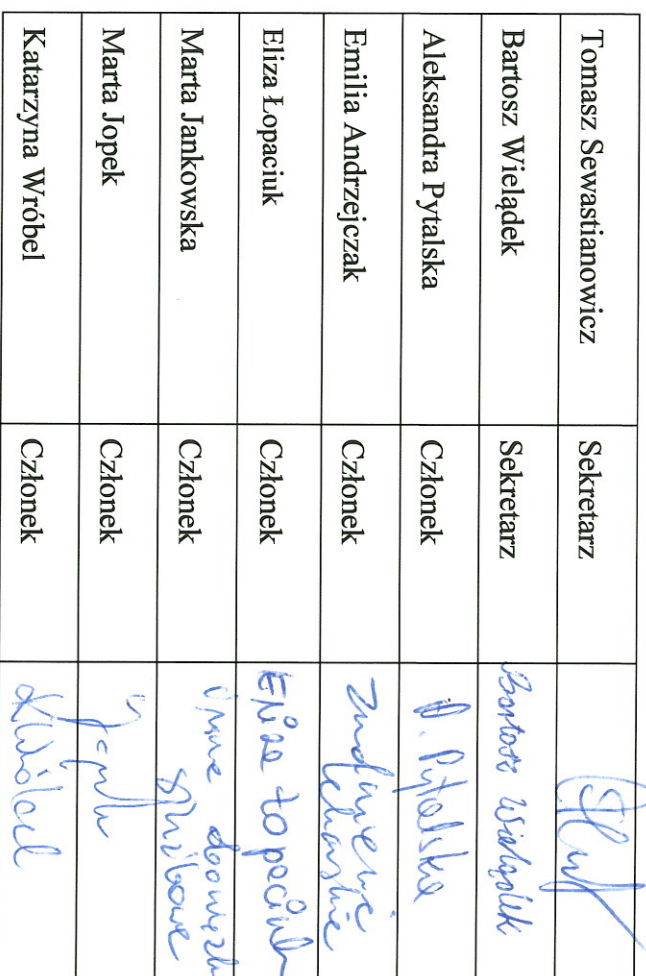 Tomasz Sewastianowicz Sekretarz
Bartosz Wielądek Sekretarz Bartosz Wielądek
Aleksandra Pytalska Członek A. Pytalska
Emilia Andrzejczak Członek zwolnienie
lekarskie
Eliza Łopaciuk Członek Eliza Łopaciuk
Marta Jankowska Członek inne obowiązki
służbowe
Marta Jopek Członek Jopek
Katarzyna Wróbel Członek KWróbel